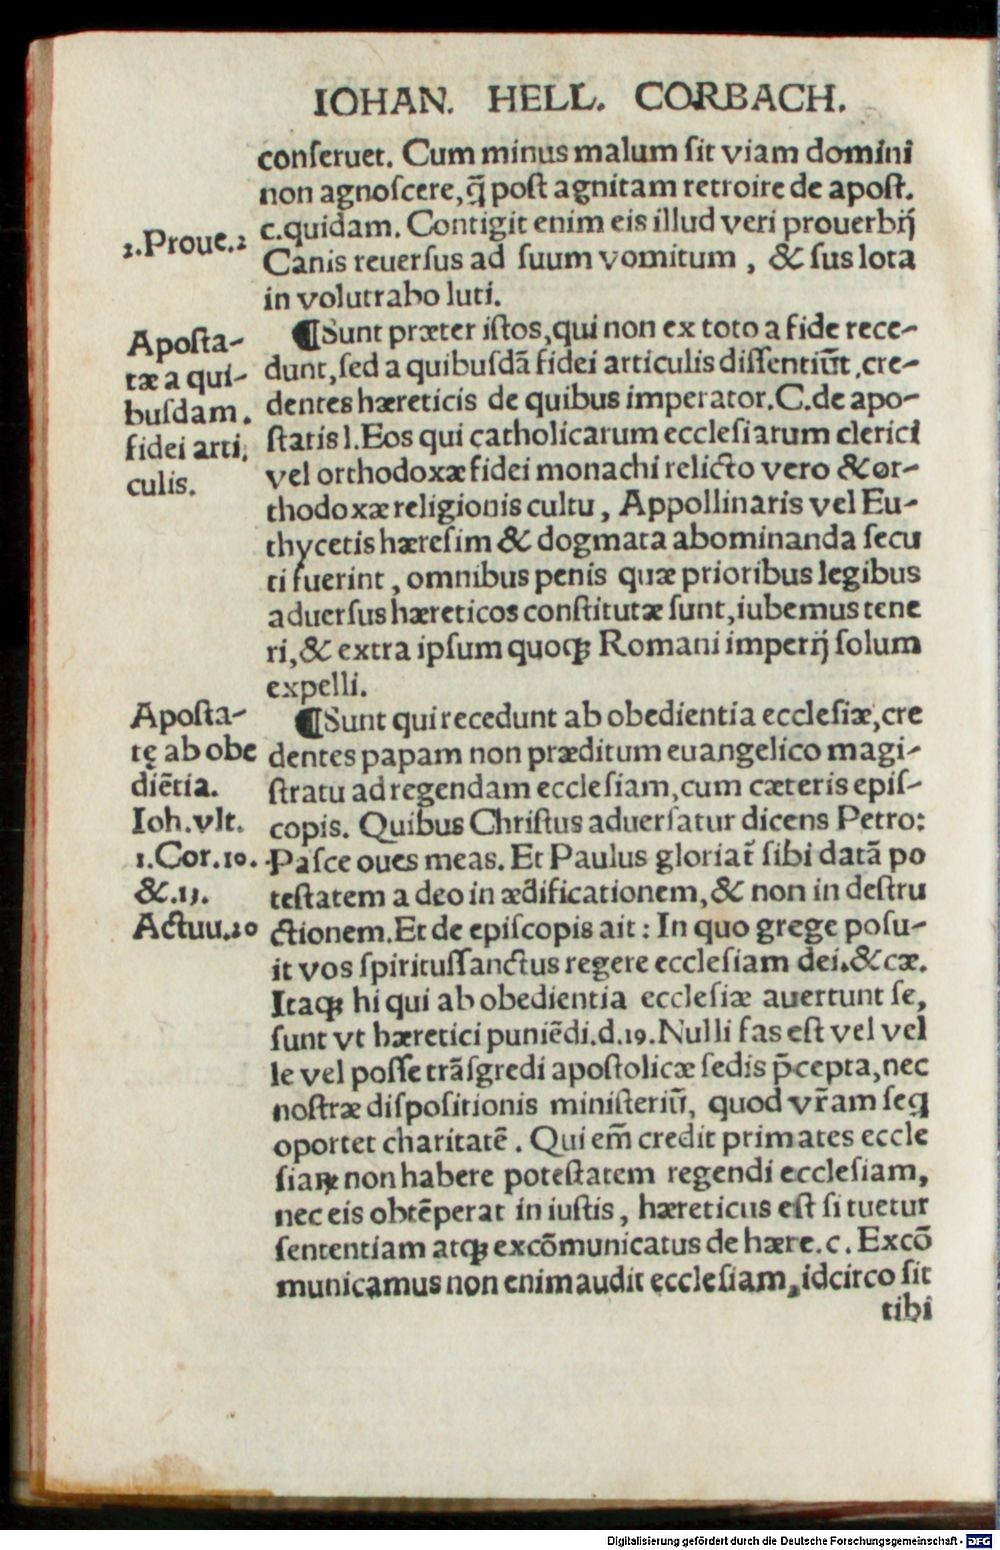 IOHAN. HELL. CORBACH.
conſeruet. Cum minus malum ſit viam domini
non agnoſcere, q̃ poſt agnitam retroire de apoſt.
c. quidam. Contigit enim eis illud veri prouerbij
2. Proue. 2
Canis reuerſus ad ſuum vomitum, & ſus lota
in volutrabo luti.
¶Sunt præter iſtos, qui non ex toto a fide rece-
Apoſta-
tæ a qui-
buſdam.
fidei arti,
culis.
dunt, ſed a quibuſdã fidei articulis diſſentiũt, cre-
dentes hæreticis de quibus imperator. C. de apo-
ſtatis l. Eos qui catholicarum eccleſiarum clerici
vel orthodoxæ fidei monachi relicto vero & or-
thodoxæ religionis cultu, Appollinaris vel Eu-
thycetis hæreſim & dogmata abominanda ſecu
ti fuerint, omnibus penis quæ prioribus legibus
aduerſus hæreticos conſtitutæ ſunt, iubemus tene
ri, & extra ipſum quoqꝫ Romani imperij ſolum
expelli.
¶Sunt qui recedunt ab obedientia eccleſiæ, cre
Apoſta-
tę ab obe
diẽtia.
Ioh. vlt.
1. Cor. 10.
&. 13.
Actuu. 20
dentes papam non præditum euangelico magi-
ſtratu ad regendam eccleſiam, cum cæteris epiſ-
copis. Quibus Chriſtus aduerſatur dicens Petro:
Paſce oues meas. Et Paulus gloriat̃ ſibi datã po
teſtatem a deo in ædificationem, & non in deſtru
ctionem. Et de epiſcopis ait: In quo grege poſu-
it vos ſpirituſſanctus regere eccleſiam dei. &cæ.
Itaqꝫ hi qui ab obedientia eccleſiæ auertunt ſe,
ſunt vt hæretici puniẽdi. d. 19. Nulli fas eſt vel vel
le vel poſſe trãſgredi apoſtolicæ ſedis p̃cepta, nec
noſtræ diſpoſitionis miniſteriũ, quod vr̃am ſeq
oportet charitatẽ. Qui em̃ credit primates eccle
ſiaꝝ non habere poteſtatem regendi eccleſiam,
nec eis obtẽperat in iuſtis, hæreticus eſt ſi tuetur
ſententiam atqꝫ excõmunicatus de hære. c. Excõ
municamus non enim audit eccleſiam, idcirco ſit
tibi
Digitalisierung gefördert durch die Deutsche Forschungsgemeinschaft - DFG